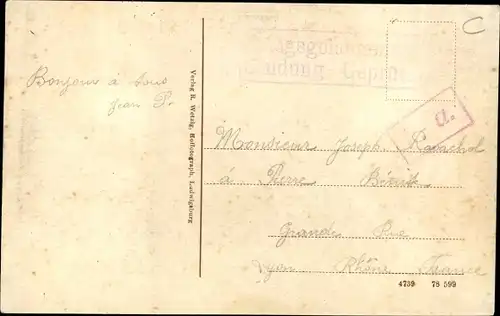 C
Bonjour à tous
Jean P.
Verlag R. Wetzig, Hofphotograph, Ludwigsburg
a.
Monsieur Joseph
à Pierre Bénite
Grande Rue
Lyon Rhône France
4739 78 599